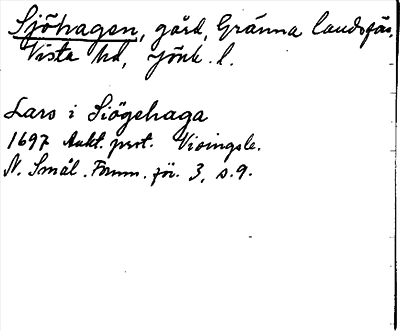 Sjöhagen, gård, Gränna landsförs.
Vista hd, Jönk. l.
Lars i Siögehaga
1697 Aukt. prot. Visingsb.
N. Smål. Fornm. för. 3, s. 9.